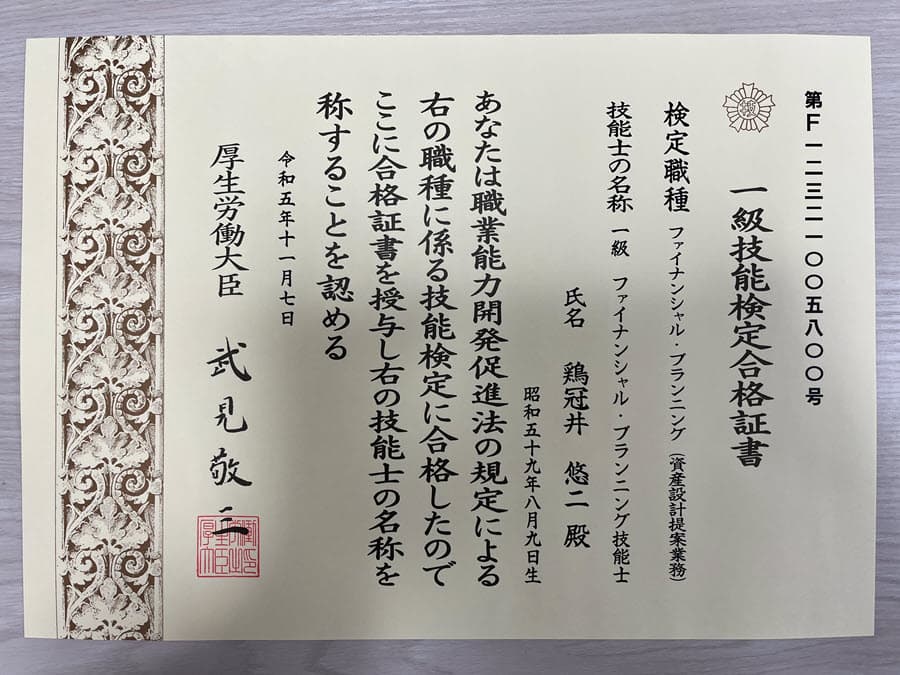 第F一二三二一〇〇五八〇〇号
一級技能検定合格証書
検定職種 ファイナンシャル・プランニング(資産設計提案業務)
技能士の名称 一級 ファイナンシャル・プランニング技能士
氏名 鶏冠井 悠二 殿
昭和五十九年八月九日生
あなたは職業能力開発促進法の規定による
右の職種に係る技能検定に合格したので
ここに合格証書を授与し右の技能士の名称を
称することを認める
令和五年十一月七日
厚生労働大臣 武見敬三